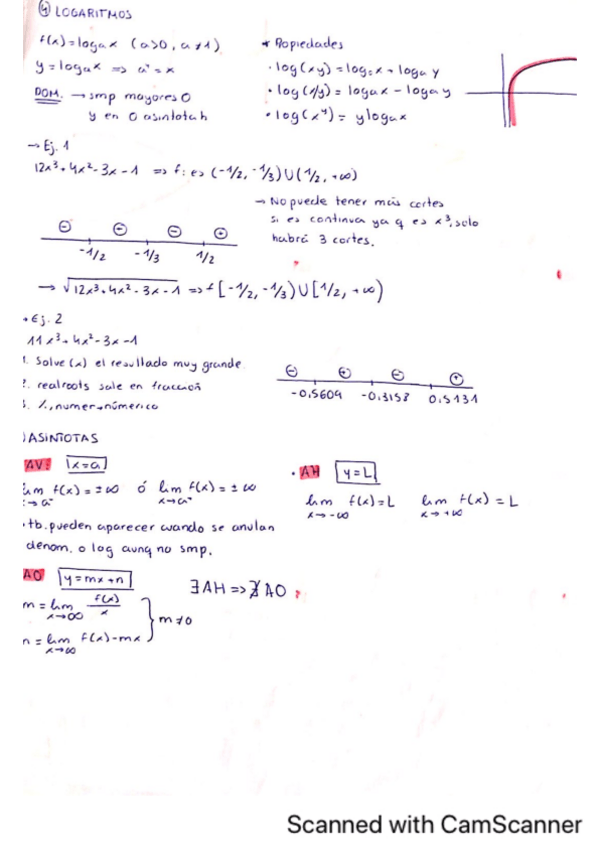 ④ LOGARITMOS
f(x) = logₐx (a>0, a≠1)
y = logₐx => aʸ = x
DOM. → smp mayores 0
y en 0 asíntota h
* Propiedades
· log(xy) = logₐx + logₐy
· log(x/y) = logₐx - logₐy
· log(xʸ) = y logₐx
→ Ej. 1
12x³+4x²-3x-1 => f: es (-1/2, -1/3) U (1/2, +∞)
→ No puede tener más cortes
si es continua ya q es x³, solo
habrá 3 cortes.
⊖ ⊕ ⊖ ⊕
-1/2 -1/3 1/2
→ √12x³+4x²-3x-1 => f [-1/2, -1/3) U [1/2, +∞)
Ej. 2
11x³+4x²-3x-1
1. Solve (x) el resultado muy grande.
2. realroots sale en fracción
%, numer→númerico
⊖ ⊕ ⊖ ⊕
-0,5604 -0,3158 0,5131
) ASINTOTAS
AV: x=a
lim f(x) = ±∞ ó lim f(x) = ±∞
x→a⁻ x→a⁺
· tb. pueden aparecer cuando se anulan
denom. o log aunq no smp.
· AH y=L
lim f(x)=L lim f(x)=L
x→-∞ x→+∞
AO y=mx+n
m = lim f(x)/x
x→∞
n = lim f(x)-mx
x→∞
m≠0
∃AH => ∄AO
Scanned with CamScanner